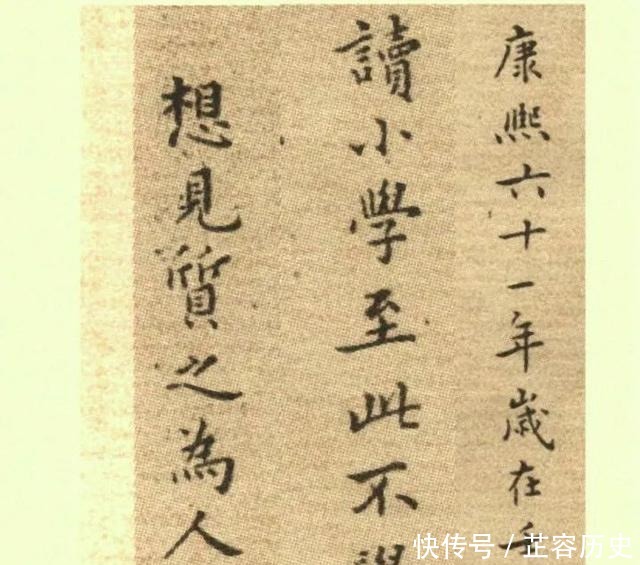 康熙六十一年歲在
讀小學至此不
想見質之為人
快传号 / 芷容历史